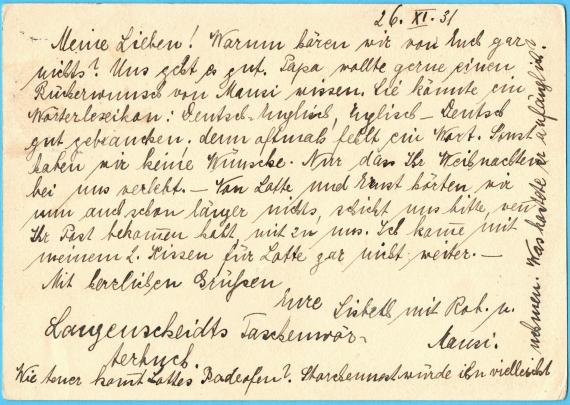 26. XI. 31
Meine Lieben! Warum hören wir von Euch gar
nichts? Uns geht es gut. Papa wollte gerne einen
von Mausi wissen. Sie könnte ein
Wörterlexikon: Deutsch-Englisch, Englisch-Deutsch
gut gebrauchen, denn oftmals fehlt ein Wort. Sonst
haben wir keine Wünsche. Nur das Ihr Weihnachten
bei uns verlebt. — Von Lotte und Ernst hörten wir
nun auch schon länger nichts, schickt uns bitte, wenn
Ihr Post bekommen habt mit zu uns. Ich komme mit
meinem 2. Kissen für Lotte gar nicht weiter. —
Mit herzlichen Grüßen
Eure Lisbeth mit Rob. u.
Mausi.
Langenscheidts Taschenwör-
terbuch.
Wie teuer kommt Lottes Badeofen? würde ihn vielleicht
nehmen. Was kostete er anfänglich?